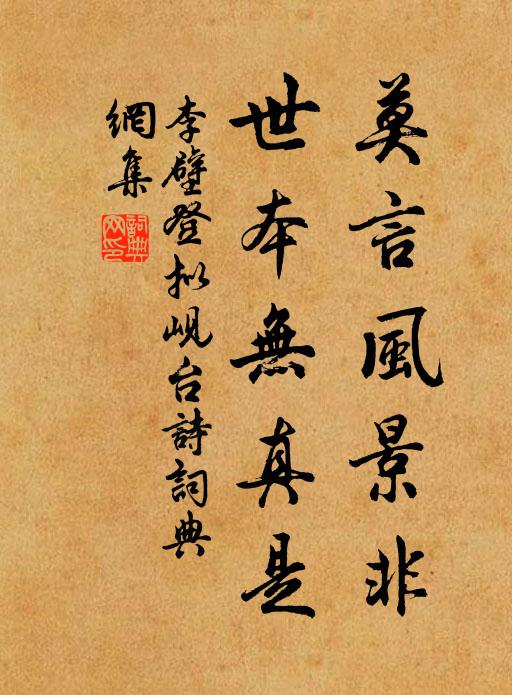 莫言風景非
世本無真是
李壁登拟峴台詩詞典
網集
詞典
网印